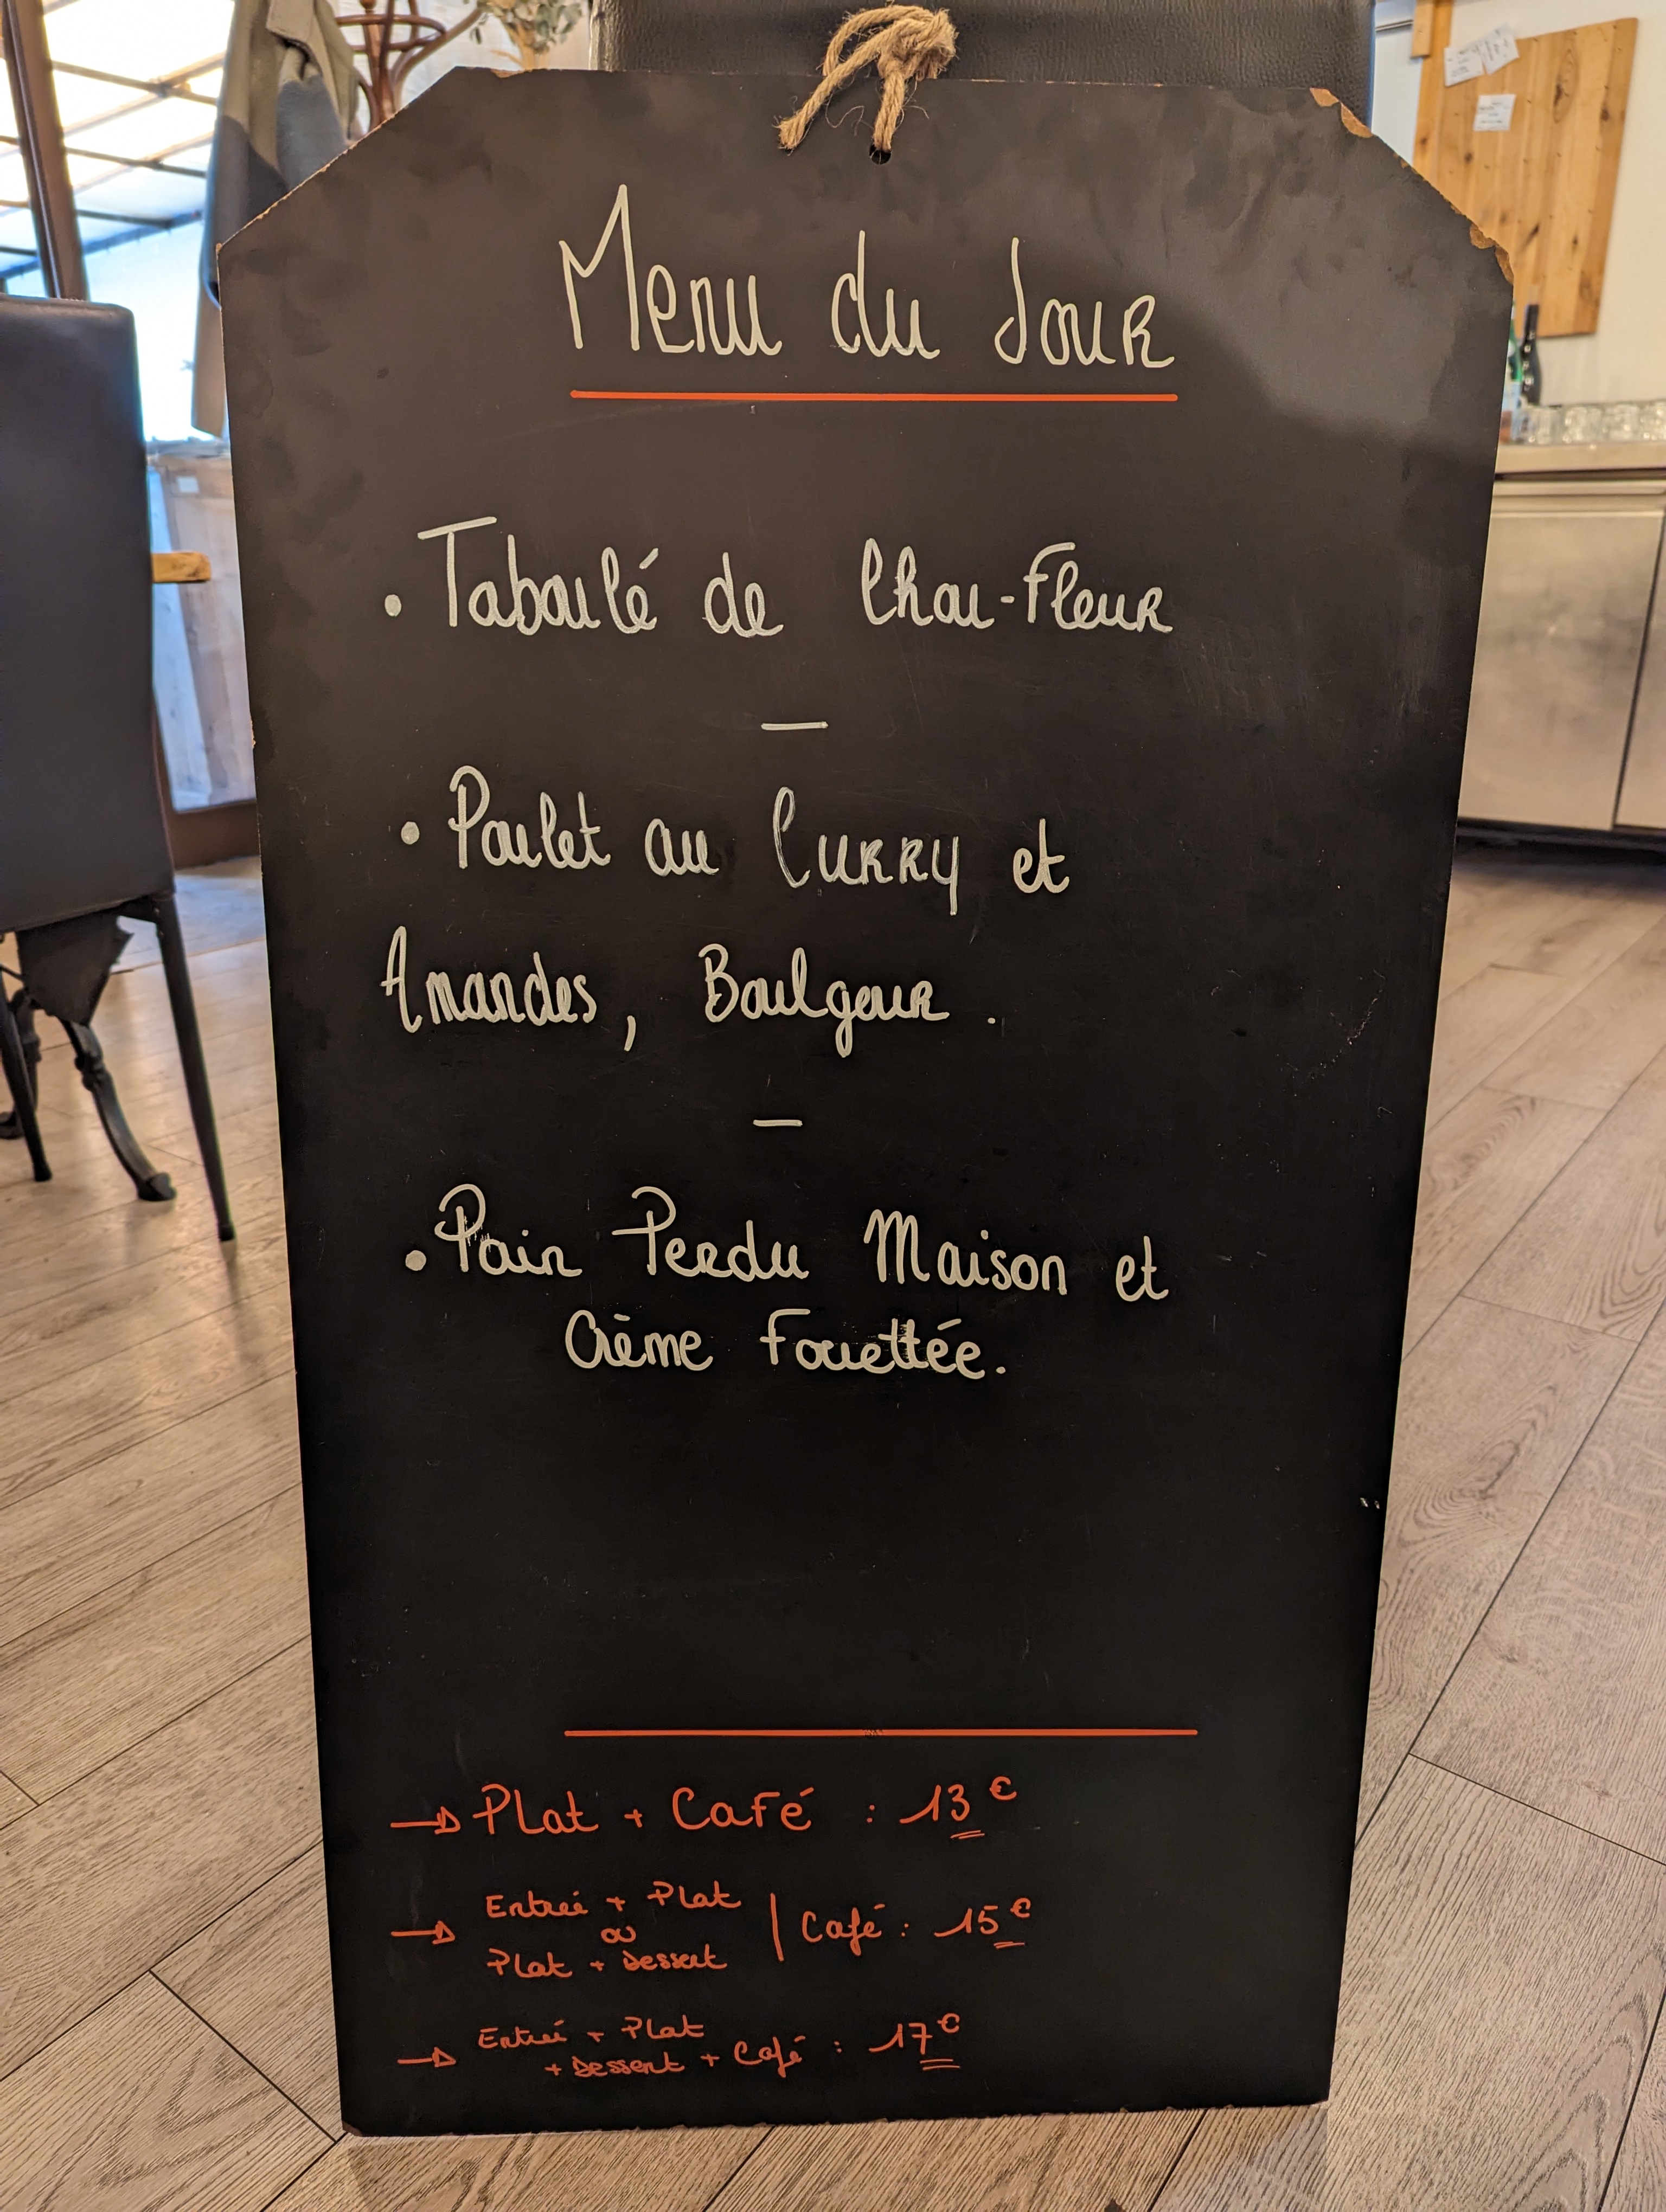 Menu du Jour
• Taboulé de Chou-Fleur
—
• Poulet au Curry et
Amandes, Boulgour.
—
• Pain Perdu Maison et
Crème Fouettée.
→ Plat + Café : 13€
→ Entrée + Plat
ou
Plat + Dessert | Café : 15€
→ Entrée + Plat
+ Dessert + Café : 17€